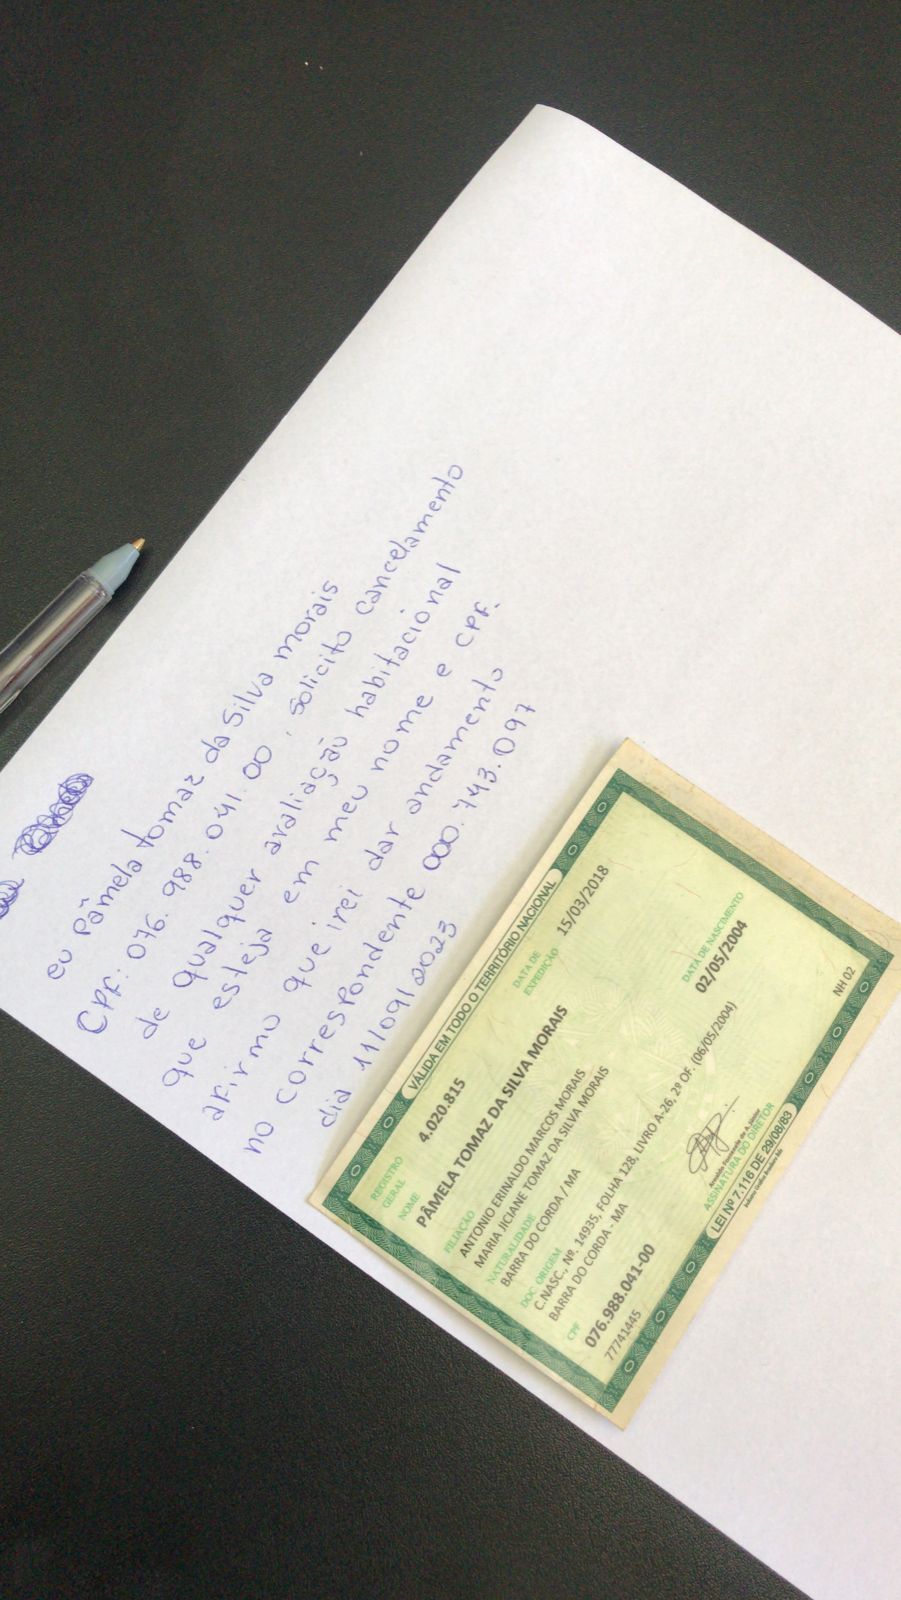 eu Pâmela tomaz da Silva morais
CPF: 076.988.041.00, Solicito cancelamento
de qualquer avaliação habitacional
que esteja em meu nome e CPF.
afirmo que irei dar andamento
no correspondente 000.743.097
dia 11/09/2023
VÁLIDA EM TODO O TERRITÓRIO NACIONAL
REGISTRO GERAL 4.020.815
DATA DE EXPEDIÇÃO 15/03/2018
NOME
PÂMELA TOMAZ DA SILVA MORAIS
FILIAÇÃO
ANTONIO ERINALDO MARCOS MORAIS
MARIA JICIANE TOMAZ DA SILVA MORAIS
NATURALIDADE
BARRA DO CORDA / MA
DATA DE NASCIMENTO
02/05/2004
DOC. ORIGEM
C.NASC., Nº. 14935, FOLHA 128, LIVRO A-26, 2º OF. (06/05/2004)
BARRA DO CORDA - MA
CPF
076.988.041-00
77741445
NH 02
ASSINATURA DO DIRETOR
LEI Nº 7.116 DE 29/08/83